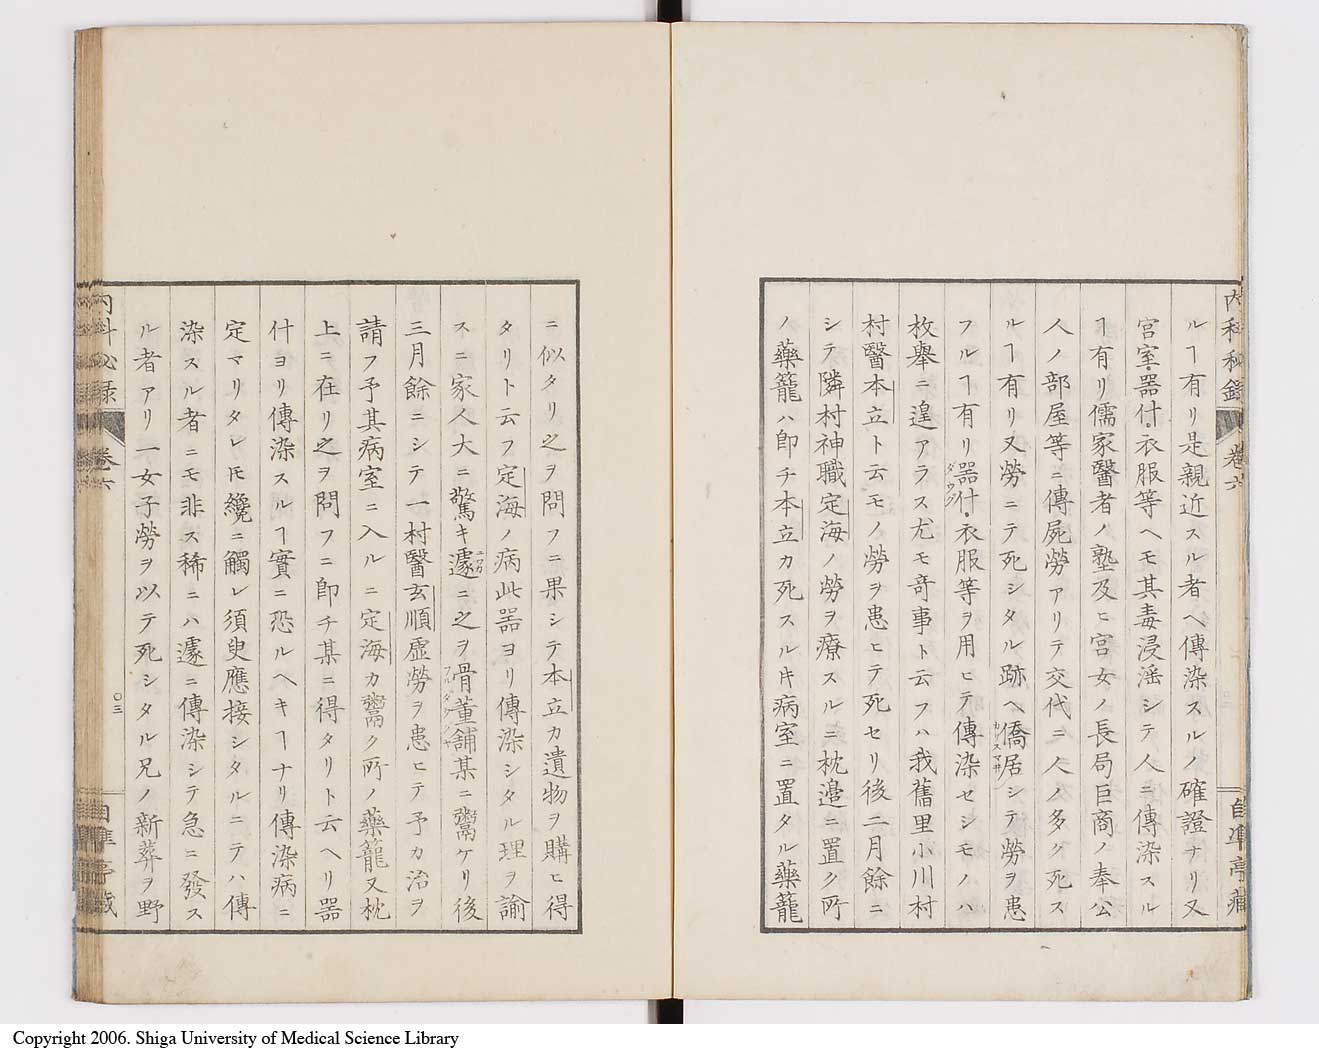 内科秘録 卷六 自準亭藏
ルヿ有リ是親近スル者ヘ傳染スルノ確證ナリ又
宮室・器什・衣服等ヘモ其毒浸淫シテ人ニ傳染スル
ヿ有リ儒家醫者ノ塾及ヒ宮女ノ長局巨商ノ奉公
人ノ部屋等ニ傳屍勞アリテ交代ニ人ノ多ク死ス
ルヿ有リ又勞ニテ死シタル跡ヘ僑居シテ勞ヲ患
フルヿ有リ器什・衣服等ヲ用ヒテ傳染セシモノハ
枚擧ニ遑アラス尤モ奇事ト云フハ我舊里小川村
村醫本立ト云モノ勞ヲ患ヒテ死セリ後二月餘ニ
シテ隣村神職定海ノ勞ヲ療スルニ枕邉ニ置ク所
ノ藥籠ハ即チ本立カ死スル片病室ニ置タル藥籠
ニ似タリ之ヲ問フニ果シテ本立カ遺物ヲ購ヒ得
タリト云フ定海ノ病此器ヨリ傳染シタル理ヲ諭
スニ家人大ニ驚キ遽ニ之ヲ骨董舗某ニ鬻ケリ後
三月餘ニシテ一村醫玄順虛勞ヲ患ヒテ予カ治ヲ
請フ予其病室ニ入ルニ定海カ鬻ク所ノ藥籠又枕
上ニ在リ之ヲ問フニ即チ某ニ得タリト云ヘリ器
什ヨリ傳染スルヿ實ニ恐ルヘキヿナリ傳染病ニ
定マリタレ𪜈纔ニ觸レ須臾應接シタルニテハ傳
染スル者ニモ非ス稀ニハ遽ニ傳染シテ急ニ發ス
ル者アリ一女子勞ヲ以テ死シタル兄ノ新葬ヲ野
内科秘録 卷六 〇三 自準亭藏
Copyright 2006. Shiga University of Medical Science Library